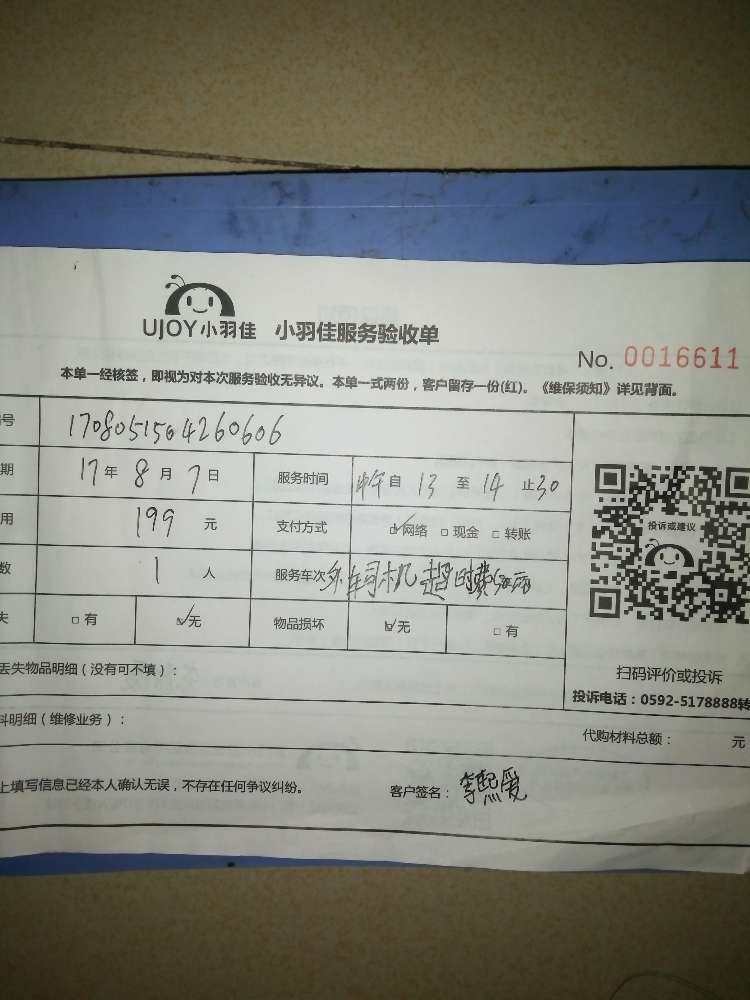 UJOY小羽佳 小羽佳服务验收单
No. 0016611
本单一经核签，即视为对本次服务验收无异议。本单一式两份，客户留存一份(红)。《维保须知》详见背面。
号 1708051504260606
期 17年8月7日 服务时间 自 13 至 14 止30
用 199 元 支付方式 ☑网络 □现金 □转账
数 1 人 服务车次 超时费
失 □有 ☑无 物品损坏 ☑无 □有
投诉或建议
扫码评价或投诉
投诉电话：0592-5178888转
丢失物品明细（没有可不填）：
料明细（维修业务）：
代购材料总额： 元
上填写信息已经本人确认无误，不存在任何争议纠纷。 客户签名：李熙爱